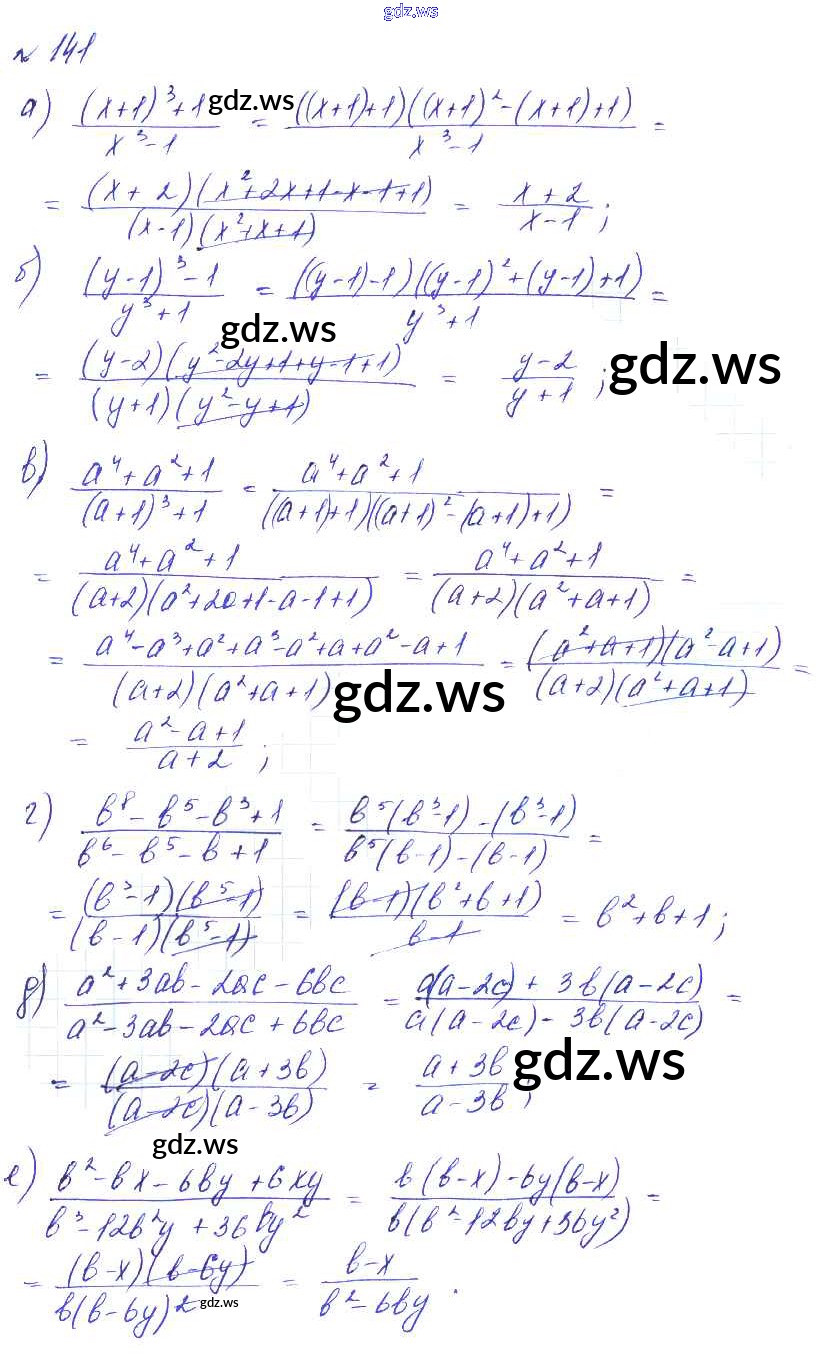 gdz.ws
№ 141
а) ((x+1)³+1)/(x³-1) = (((x+1)+1)((x+1)²-(x+1)+1))/(x³-1) =
gdz.ws
= ((x+2)(x²+2x+1-x-1+1))/((x-1)(x²+x+1)) = (x+2)/(x-1);
б) ((y-1)³-1)/(y³+1) = (((y-1)-1)((y-1)²+(y-1)+1))/(y³+1) =
gdz.ws
= ((y-2)(y²-2y+1+y-1+1))/((y+1)(y²-y+1)) = (y-2)/(y+1);
gdz.ws
в) (a⁴+a²+1)/((a+1)³+1) = (a⁴+a²+1)/(((a+1)+1)((a+1)²-(a+1)+1)) =
= (a⁴+a²+1)/((a+2)(a²+2a+1-a-1+1)) = (a⁴+a²+1)/((a+2)(a²+a+1)) =
= (a⁴-a³+a²+a³-a²+a+a²-a+1)/((a+2)(a²+a+1)) = ((a²+a+1)(a²-a+1))/((a+2)(a²+a+1)) =
gdz.ws
= (a²-a+1)/(a+2);
г) (b⁸-b⁵-b³+1)/(b⁶-b⁵-b+1) = (b⁵(b³-1)-(b³-1))/(b⁵(b-1)-(b-1)) =
= ((b³-1)(b⁵-1))/((b-1)(b⁵-1)) = ((b-1)(b²+b+1))/(b-1) = b²+b+1;
д) (a²+3ab-2ac-6bc)/(a²-3ab-2ac+6bc) = (a(a-2c)+3b(a-2c))/(a(a-2c)-3b(a-2c)) =
= ((a-2c)(a+3b))/((a-2c)(a-3b)) = (a+3b)/(a-3b);
gdz.ws
gdz.ws
е) (b²-bx-6by+6xy)/(b³-12b²y+36by²) = (b(b-x)-6y(b-x))/(b(b²-12by+36y²)) =
= ((b-x)(b-6y))/(b(b-6y)²) = (b-x)/(b²-6by).
gdz.ws